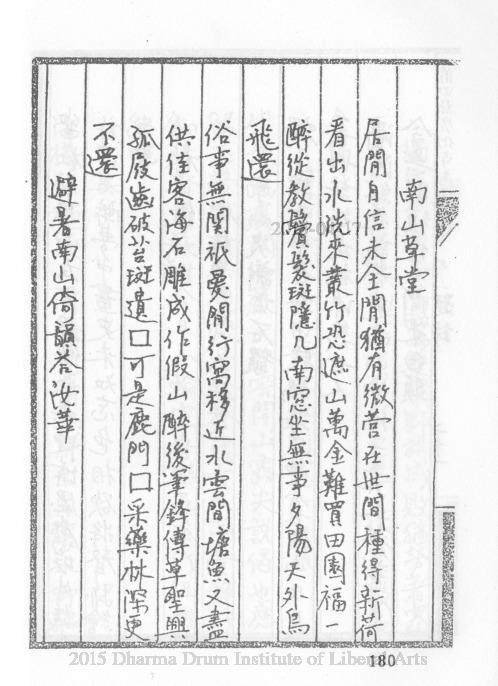 南山草堂
居閒自信未全閒猶有微营在世間種得新荷
看出水洗來叢竹恐遮山萬金難買田園福一
醉從教鬢髮斑隱几南窓坐無事夕陽天外鳥
飛還
俗事無関祇愛閒行窩移近水雲間塘魚又盡
供佳客海石雕成作假山醉後筆鋒傳草聖興
孤屐齒破苔斑遺囗可是鹿門囗采藥林深更
不還
避暑南山倚韻荅汝華
180
2015 Dharma Drum Institute of Liberal Arts